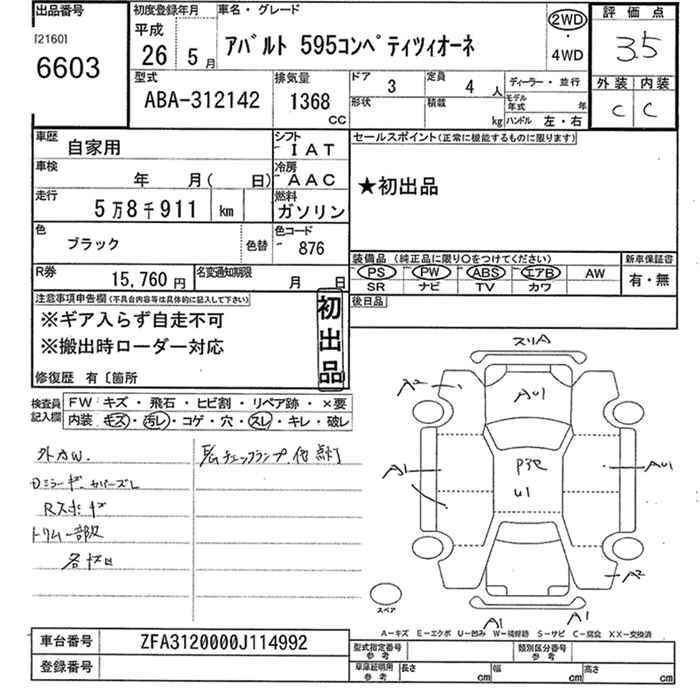 出品番号 初度登録年月 車名・グレード 2WD 評価点
[2160] 平成
6603 26 年 5 月 アバルト 595コンペティツィオーネ ・ 4WD 3.5
型式 排気量 ドア 3 定員 4 人 ディーラー・並行 外装 内装
ABA-312142 1368 CC 形状 積載 kg モデル年式 年 ハンドル 左・右 C C
車歴 自家用 シフト IAT セールスポイント(正常に機能するものに限ります)
車検 年 月( 日) 冷房 AAC ★初出品
走行 5万8千911 km 燃料 ガソリン
色 ブラック 色替 色コード 876 装備品 (純正品に限り○をつけてください) 新車保証書
PS PW ABS エアB AW 有・無
R券 15,760 円 名変通知期限 月 日 SR ナビ TV カワ
注意事項申告欄(不具合内容等は具体的に記入して下さい) 初出品 後日品
※ギア入らず自走不可
※搬出時ローダー対応
修復歴 有〔箇所
検査員記入欄 FW:キズ・飛石・ヒビ割・リペア跡・×要
内装 キズ・汚レ・コゲ・穴・スレ・キレ・破レ
スリA
A2 A01
外AW. チェックランプ 他 点灯
A1 P3R A01
U1
Rスポキズ
トリム一部
A2
スペア
A1 A1
A-キズ E-エクボ U-凹み W-補修跡 S-サビ C-腐食 XX-交換済
車台番号 ZFA3120000J114992 型式指定番号 参考 類別区分番号 参考
登録番号 車庫証明用 参考 長さ cm 幅 cm 高さ cm